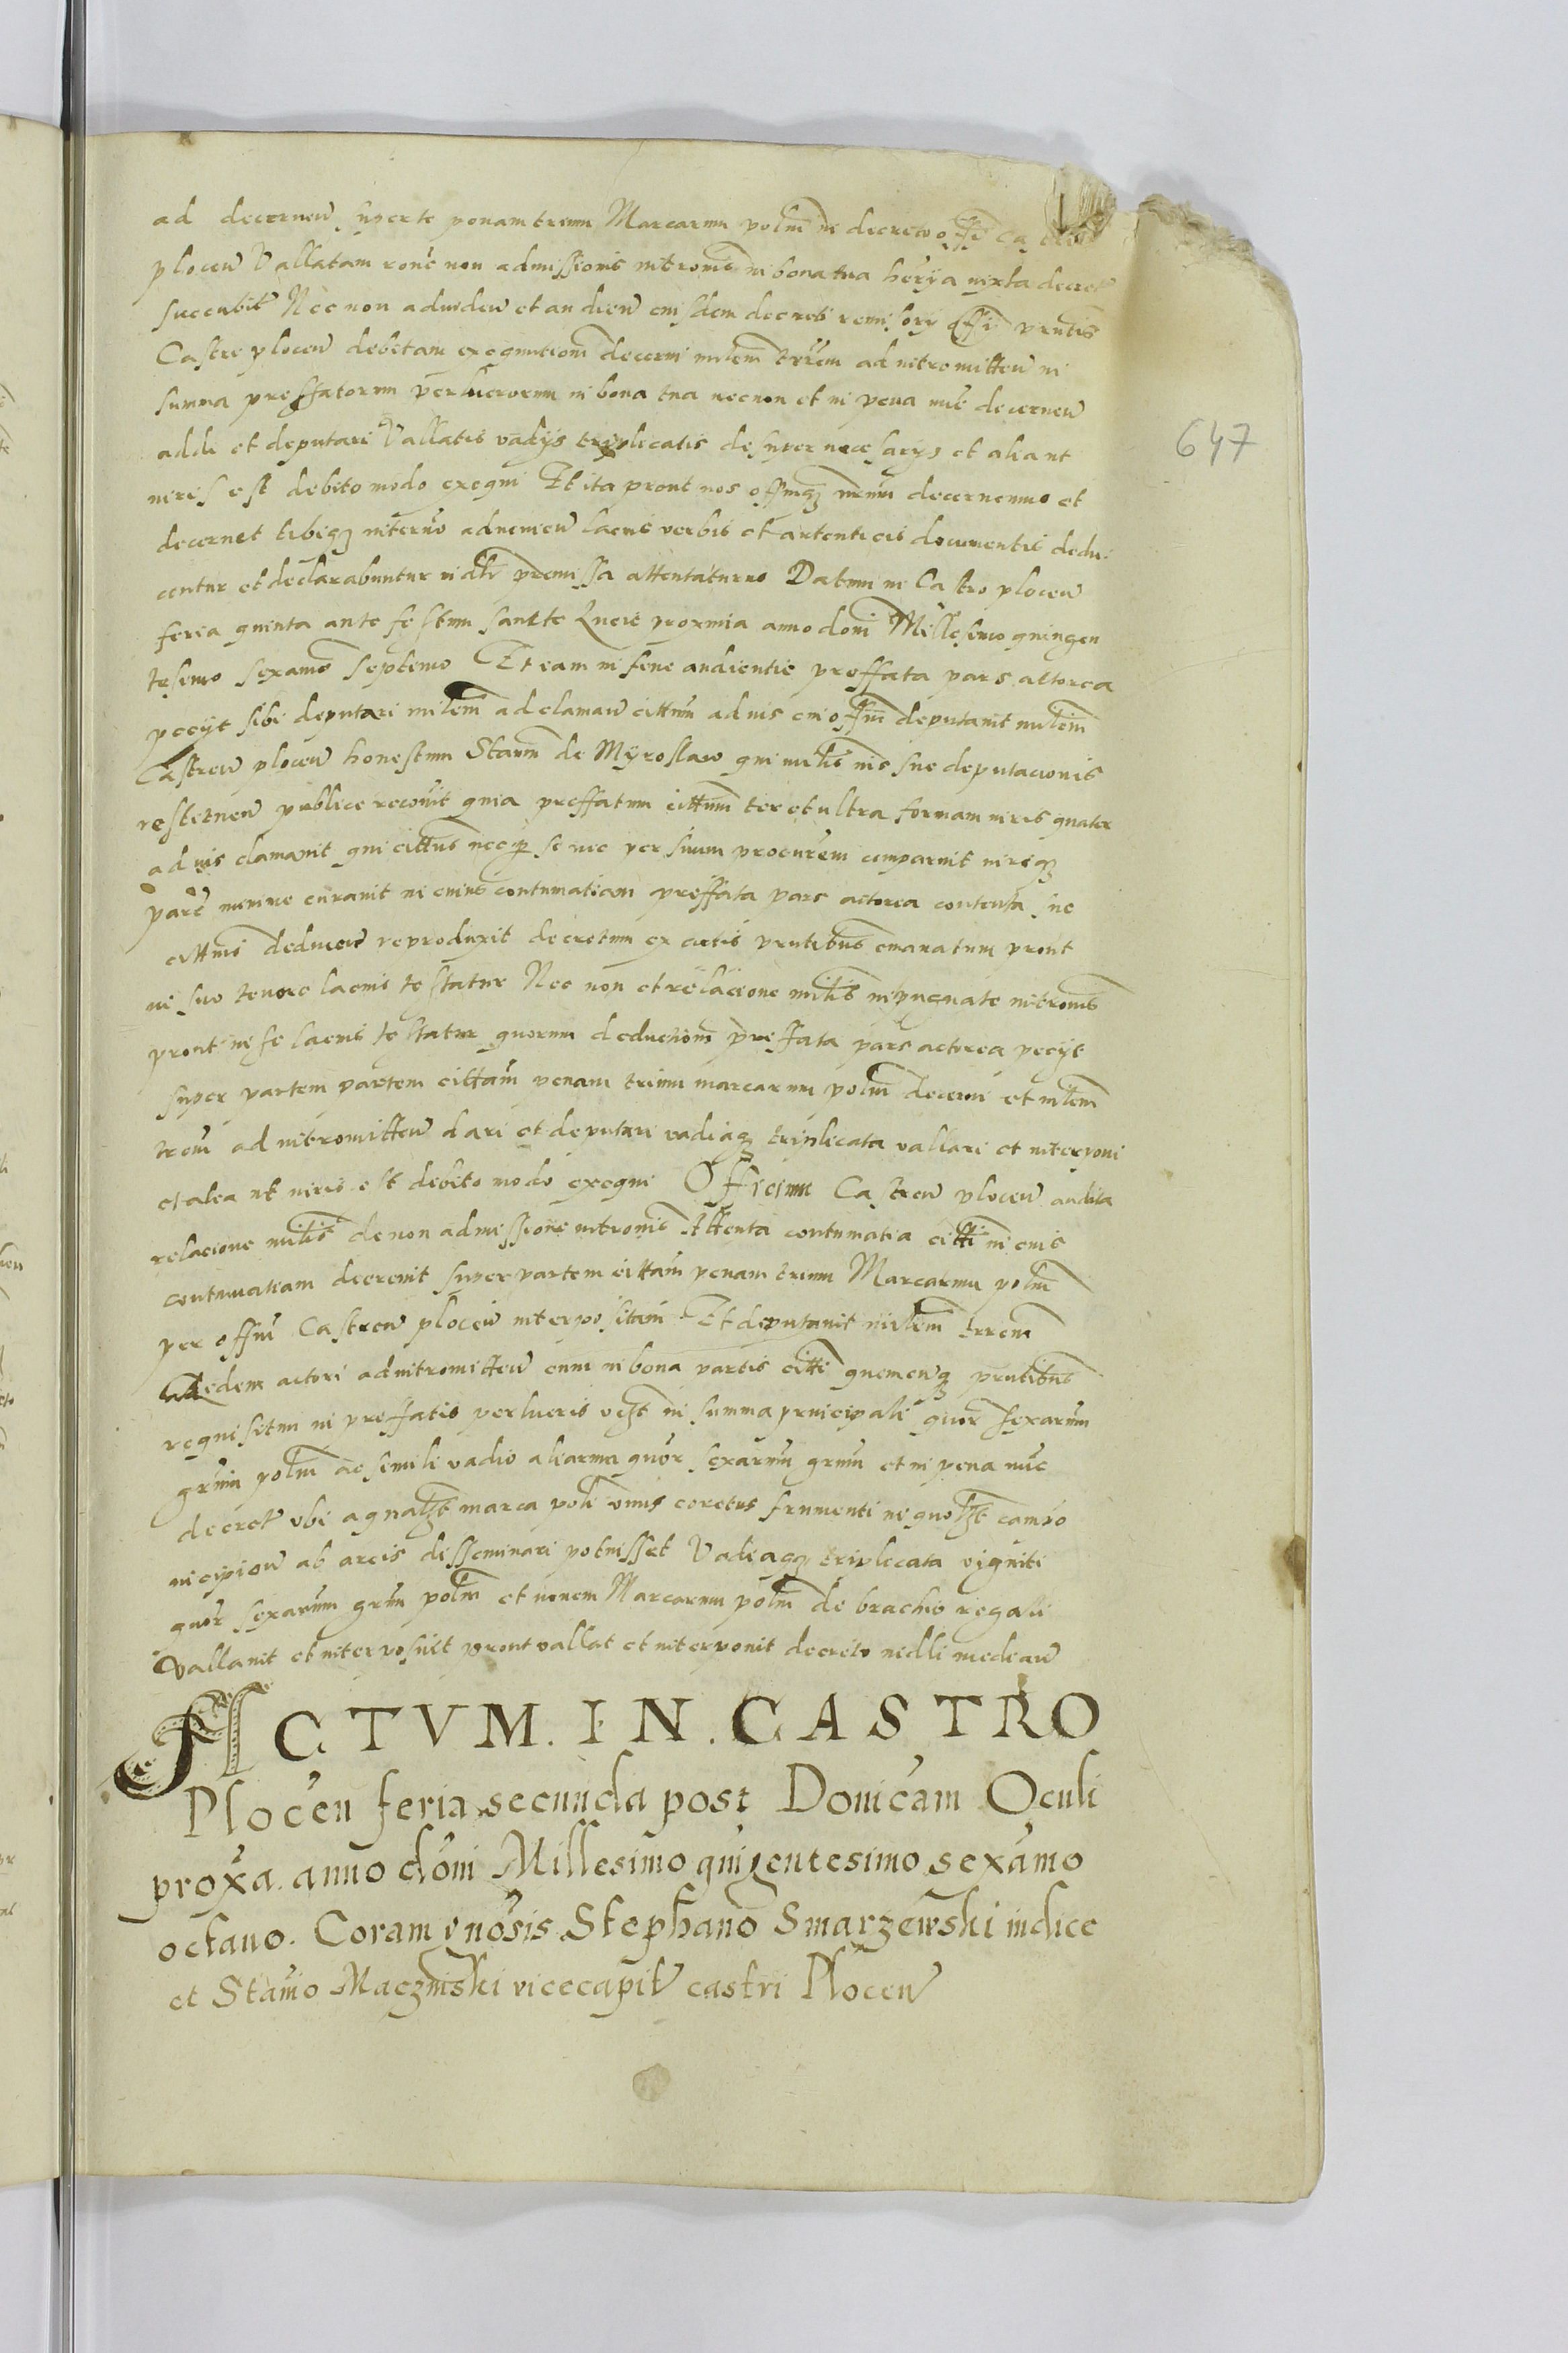 ad decernen super te penam trium Marcarum polm in decreto offi
plocen Vallatam ronē non admissionis intromis in bona tua herȳa iuxta decret
succubit Nec non ad viden et audien eiusdem decreti remissorÿ offi pntis
Castri plocen debitam exequutionē decerni mīlem trrem ad intromitten in
summa preffatorum perlucrorum in bona tua necnon et in pena nūc decernen
addi et deputari Vallatis vadÿs triplicatis desuper necessarÿs et alia ut
iuris est debito modo exequi Et ita prout nos offmqʒ nrum decernemus et
decernet tibiqʒ in termo advenien lacius verbis et autenticis documentis dedu
centur et declarabuntur iudlr premissa attentaturus Datum in Castro plocen
feria quinta ante festum sancte Lucie proxima anno doni Millesimo quingen
tesimo sexamo septimo Et eam in fine audientie preffata pars actorea
peciit sibi deputari milem ad claman cittum ad ius cui offm deputavit milem
Castren plocen honestum Stanm de Mÿroslaw qui milis ius sue deputacionis
restitnen publice recovit quia preffatum cittum ter et ultra formam iuris quater
ad ius clamavit qui cittus neqʒ se nec per suum procurem comparuit iuriqʒ
parē minime curavit in cuius contumatiam preffata pars actorea contenta ine
cittuis deducen reproduxit decretum ex actis pntibus emanatum prout
in suo tenore lacius testatur Nec non et relacione milis inpugnate intromis
prout in se lacius testatur quorum deductiom preffata pars actorea peciit
super partem partem cittam penam trium marcarum polm decerni et milem
trem ad intromitten dari et deputari vadiaqʒ triplicata vallari et interponi
et alia ut iuris est debito modo exequi Officium Castren plocen audita
relacione milis de non admissione intromis Attenta contumatia citti in cuis
contumatiam decrevit super partem cittam penam trium Marcarum polm
per offm Castren plocen interpositam Et deputavit milem trrem
eidem actori ad intromitten eum in bona partis citti quemcunqʒ pntibus
requisitum in preffatis perlucris vcʒt in summa principali quor sexarum
grum polm ac simili vadio aliarum quor sexarum grum et in pena nūc
decret ubi a gnalʒt marca poli unus coretus frumenti in quolʒt campo
incipien ab arcis disseminari potuisset Vadiaqʒ triplicata viginti
quor sexarum grum polm et novem Marcarum polm de brachio regali
Vallavit et interposuit prout vallat et interponit decreto iudlli median
ACTVM. IN. CASTRO
Plocen feria secunda post Donicam Oculi
proxa. anno doni Millesimo quigentesimo sexamo
octavo. Coram gnosis Stephano Smarzewski iudice
et Stanio Maczinski vicecapit castri Plocen
647